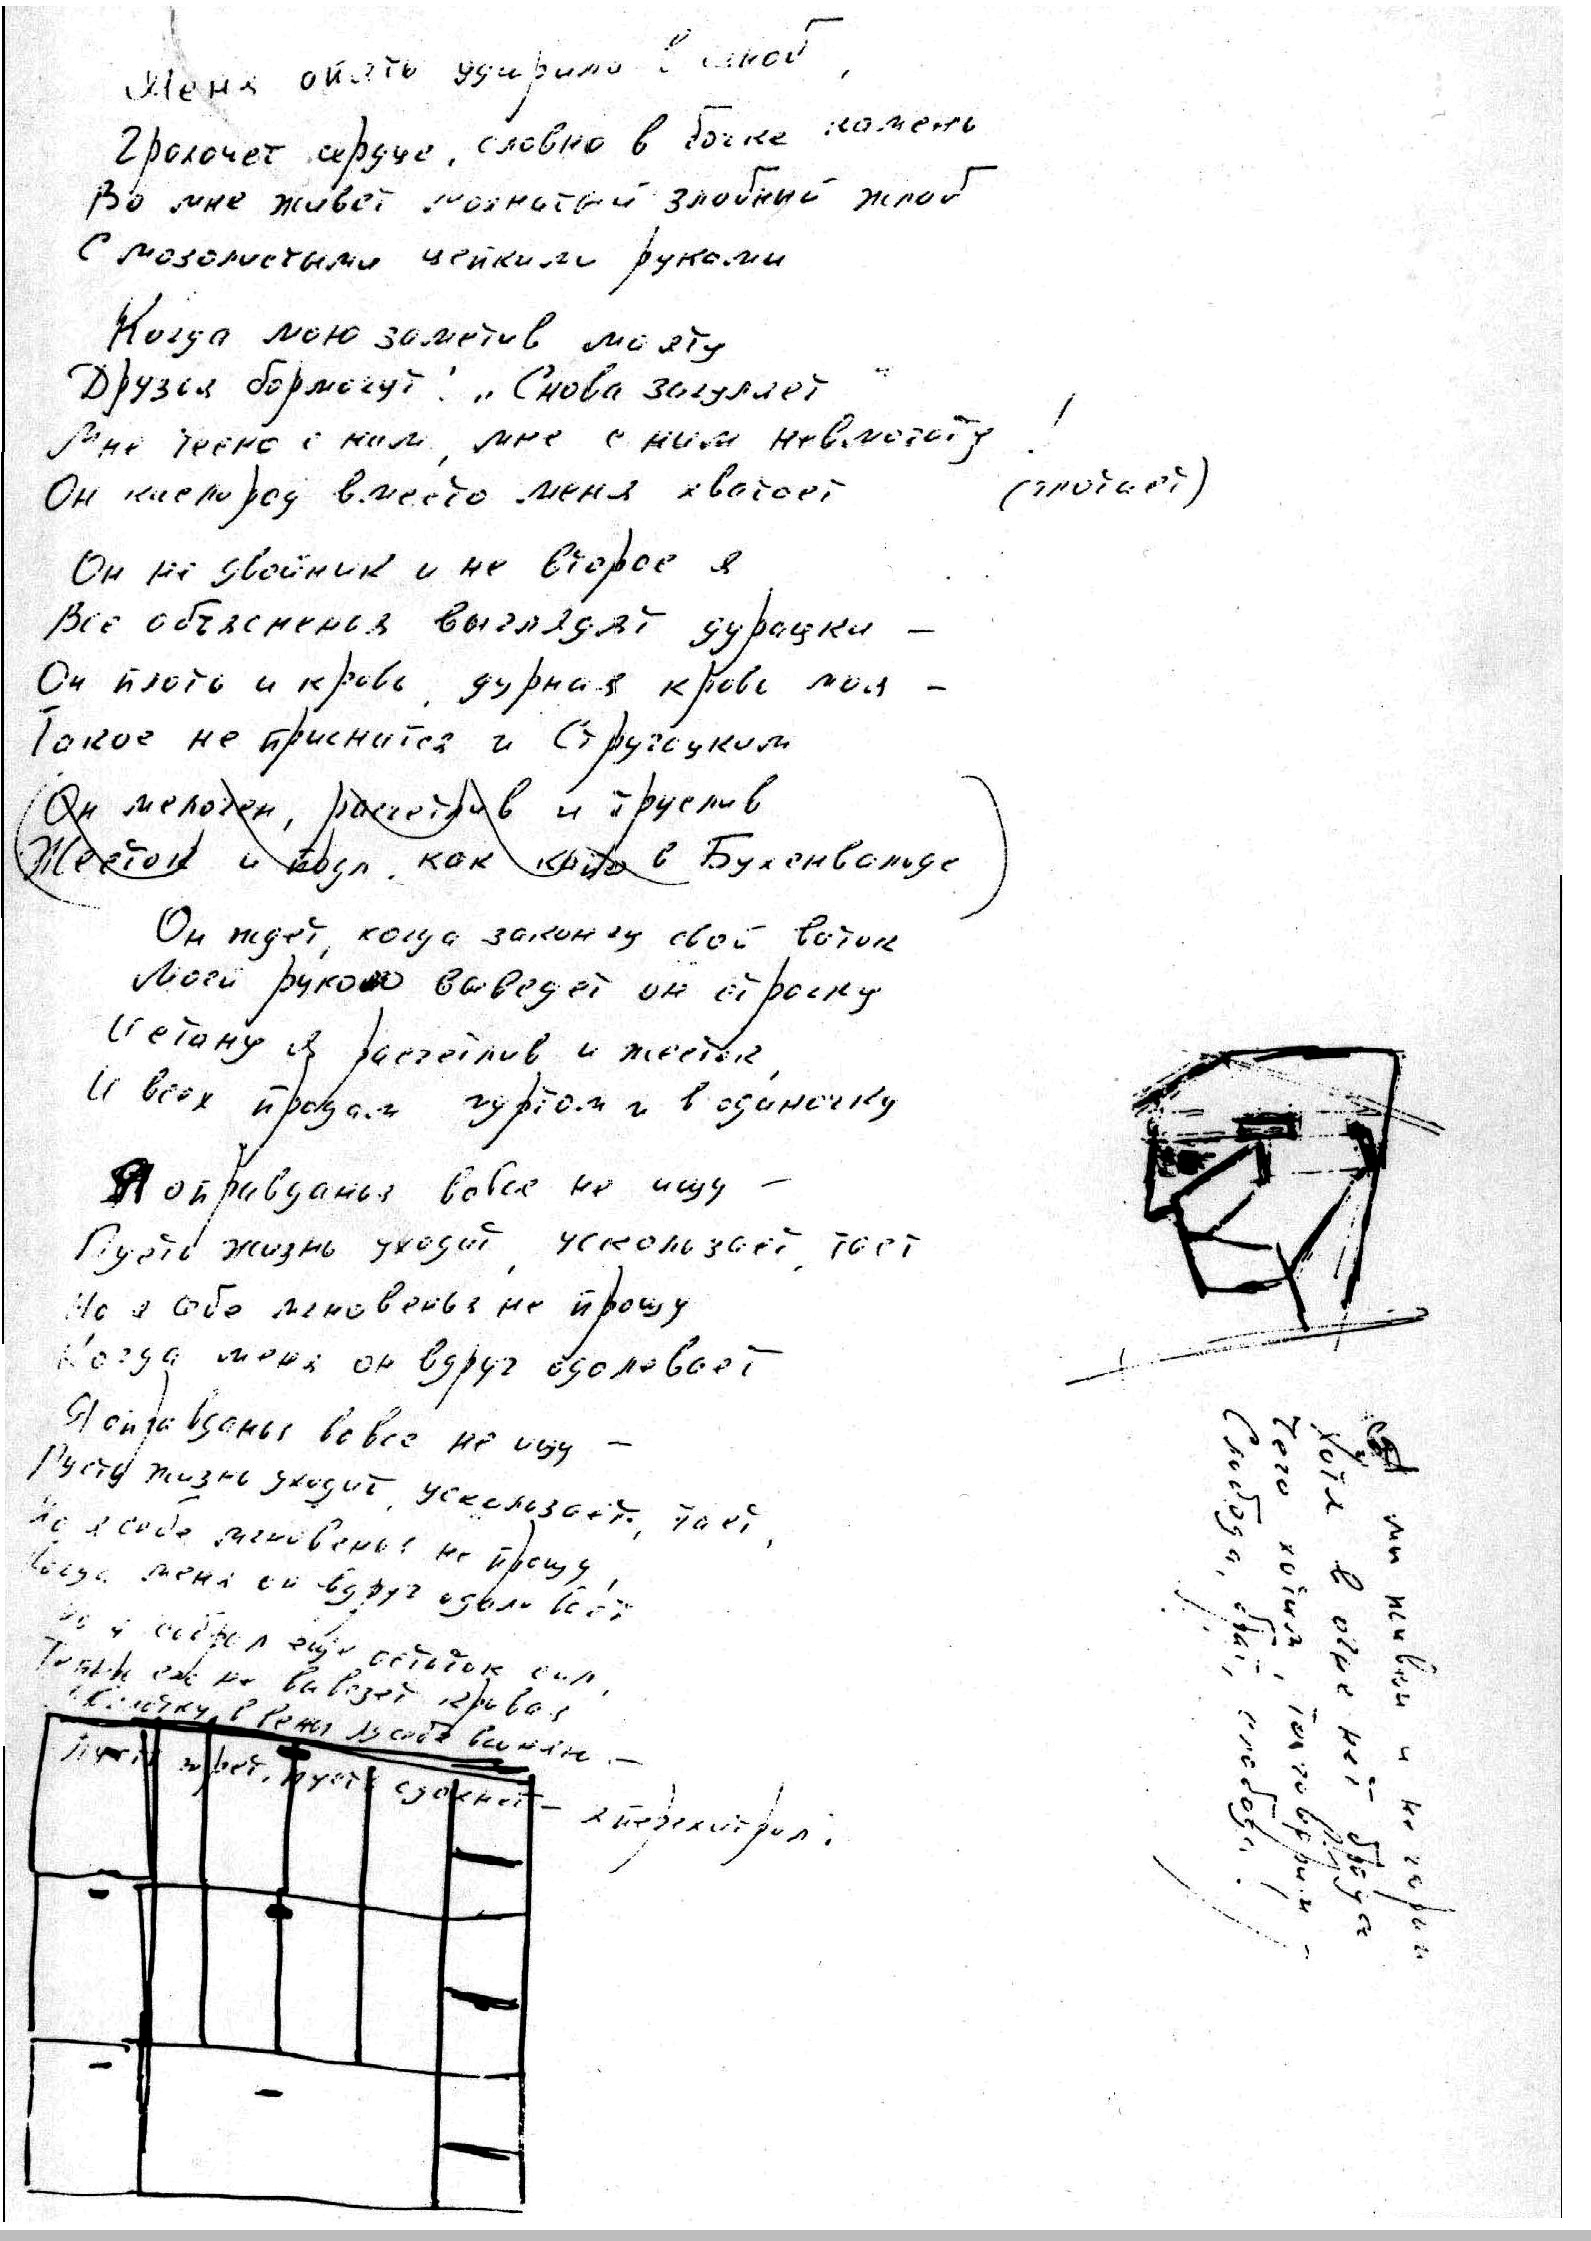 Меня опять ударило в озноб,
Грохочет сердце, словно в бочке камень
Во мне живет мохнатый злобный жлоб
С мозолистыми цепкими руками
Когда мою заметив маяту
Друзья бормочут: „Снова загуляет"
Мне тесно с ним, мне с ним невмоготу!
Он кислород вместо меня хватает (глотает)
Он не двойник и не второе я
Все объясненья выглядят дурацки –
Он плоть и кровь, дурная кровь моя –
Такое не приснится и Стругацким
(Он мелочен, расчетлив и труслив
Жесток и подл, как в Бухенвальде)
Он ждет, когда закончу свой виток
Моей рукою выведет он строчку
И стану я расчетлив и жесток,
И всех продам гуртом и в одиночку
Я оправданья вовсе не ищу –
Пусть жизнь уходит, ускользает, тает
Но я себе мгновенья не прощу
Когда меня он вдруг одолевает
Я оправданья вовсе не ищу –
Пусть жизнь уходит, ускользает, тает,
Но я себе мгновенья не прощу,
Когда меня он вдруг одолевает
Но я собрал еще остаток сил,
Теперь его не вывезет кривая
в вены себе вгоняю –
Пусть жрет, пусть сдохнет – я перехитрил.
мы живы и не горим
Хотя в огне нет брода
Чего хотим, то говорим –
Свобода, бл., свобода!